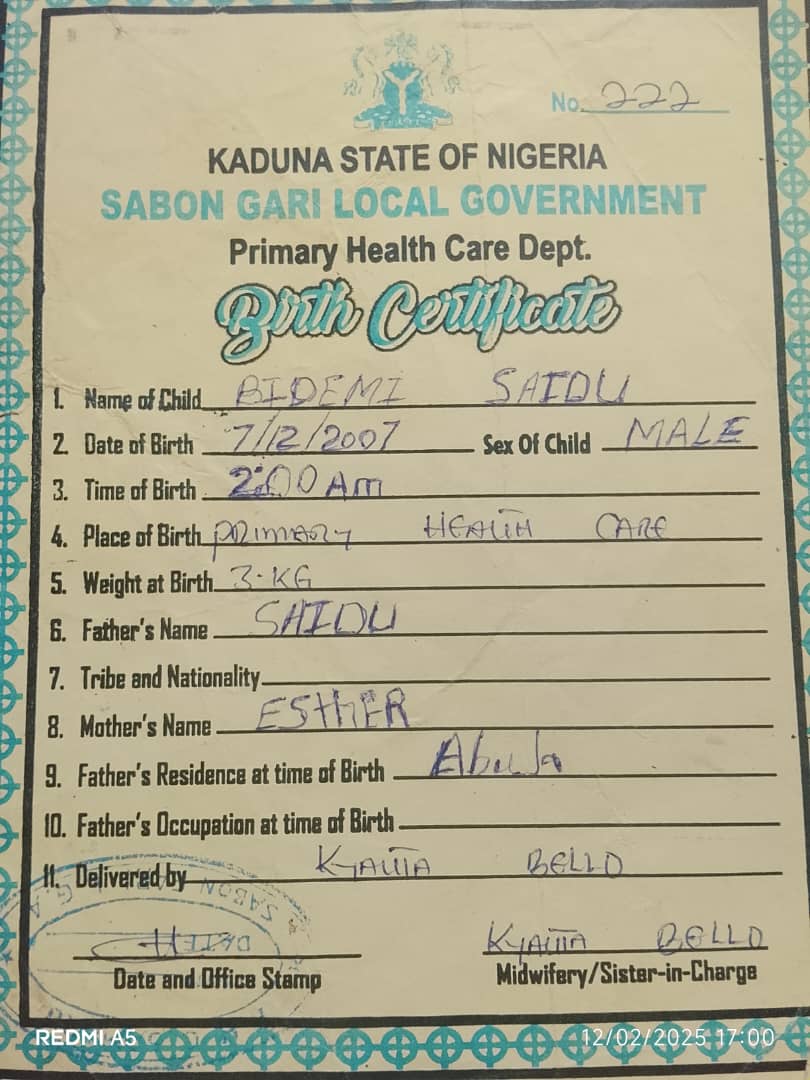 No. 222
KADUNA STATE OF NIGERIA
SABON GARI LOCAL GOVERNMENT
Primary Health Care Dept.
Birth Certificate
1. Name of Child BIDEMI SAIDU
2. Date of Birth 7/12/2007 Sex Of Child MALE
3. Time of Birth 2:00 Am
4. Place of Birth PRIMARY HEALTH CARE
5. Weight at Birth 3.KG
6. Father's Name SAIDU
7. Tribe and Nationality
8. Mother's Name ESTHER
9. Father's Residence at time of Birth Abuja
10. Father's Occupation at time of Birth
11. Delivered by KYAUTA BELLO
SABON
KYAUTA BELLO
Date and Office Stamp Midwifery/Sister-in-Charge
REDMI A5 12/02/2025 17:00